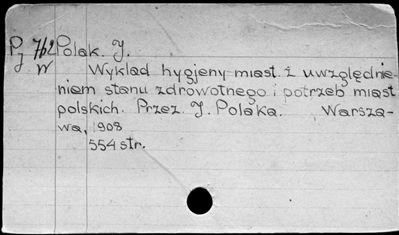 Pj 762 Polak. J.
W Wykład hygjeny miast. z uwzględnie-
niem stanu zdrowotnego i potrzeb miast
polskich. Przez J. Polaka. Warsza-
wa, 1908
554 str.